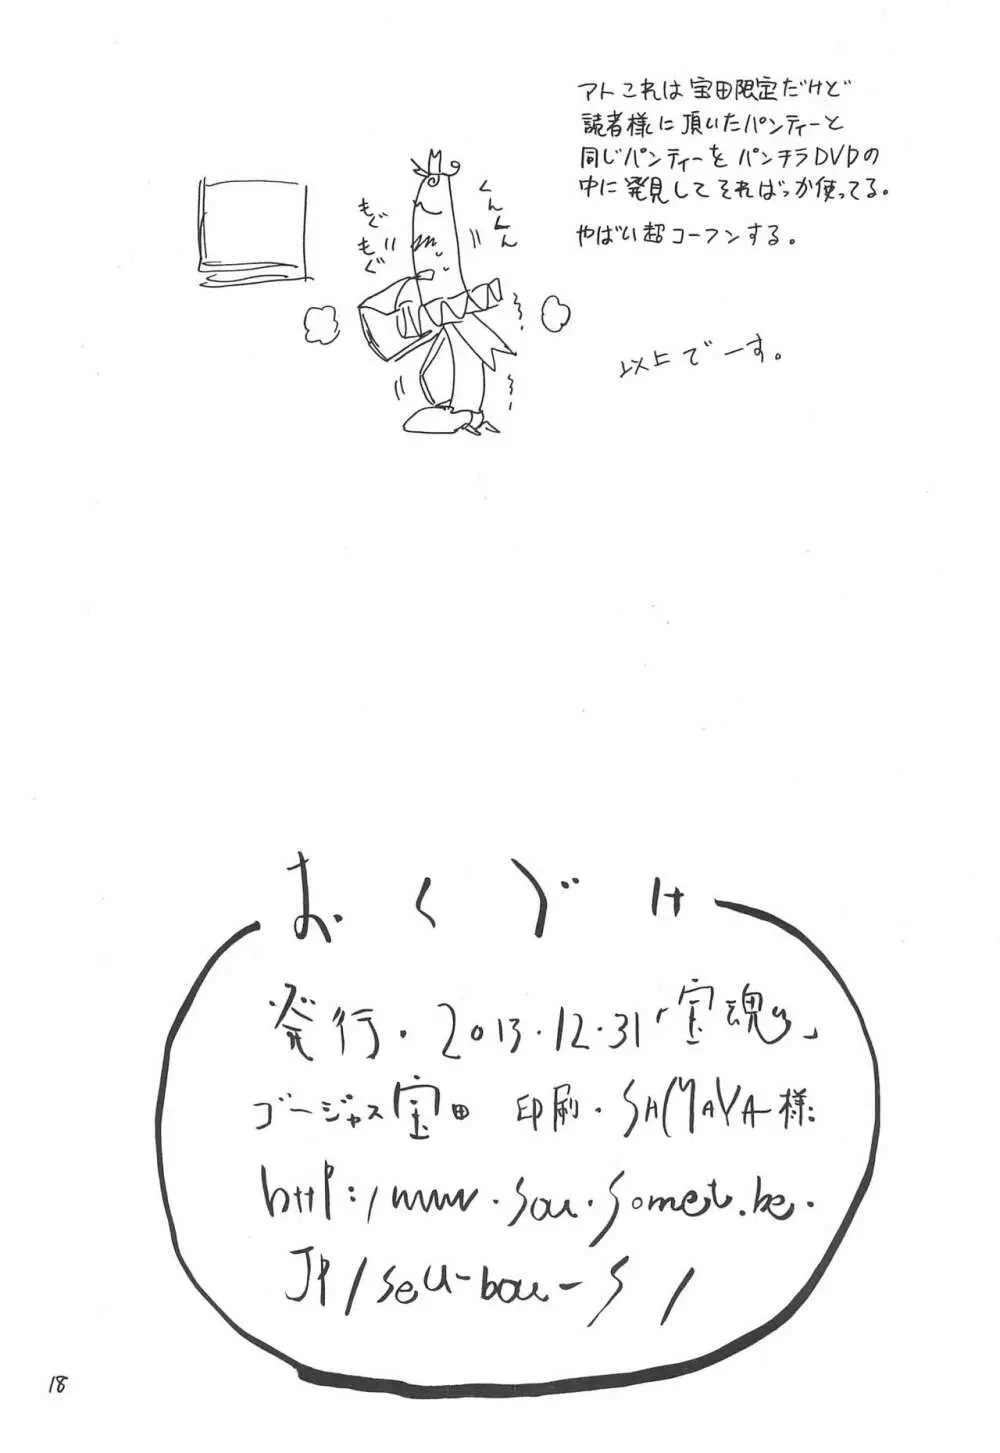 アトこれは宝田限定だけど
読者様に頂いたパンティーと
同じパンティーをパンチラDVDの
中に発見してそればっか使ってる。
やばい超コーフンする。
くんくん
もぐもぐ
以上でーす。
おくづけ
発行・2013・12・31「宝魂」
ゴージャス宝田 印刷・SAMAYA様
http:/www.sou.somet.be.
JP/seu-bou-s/
18